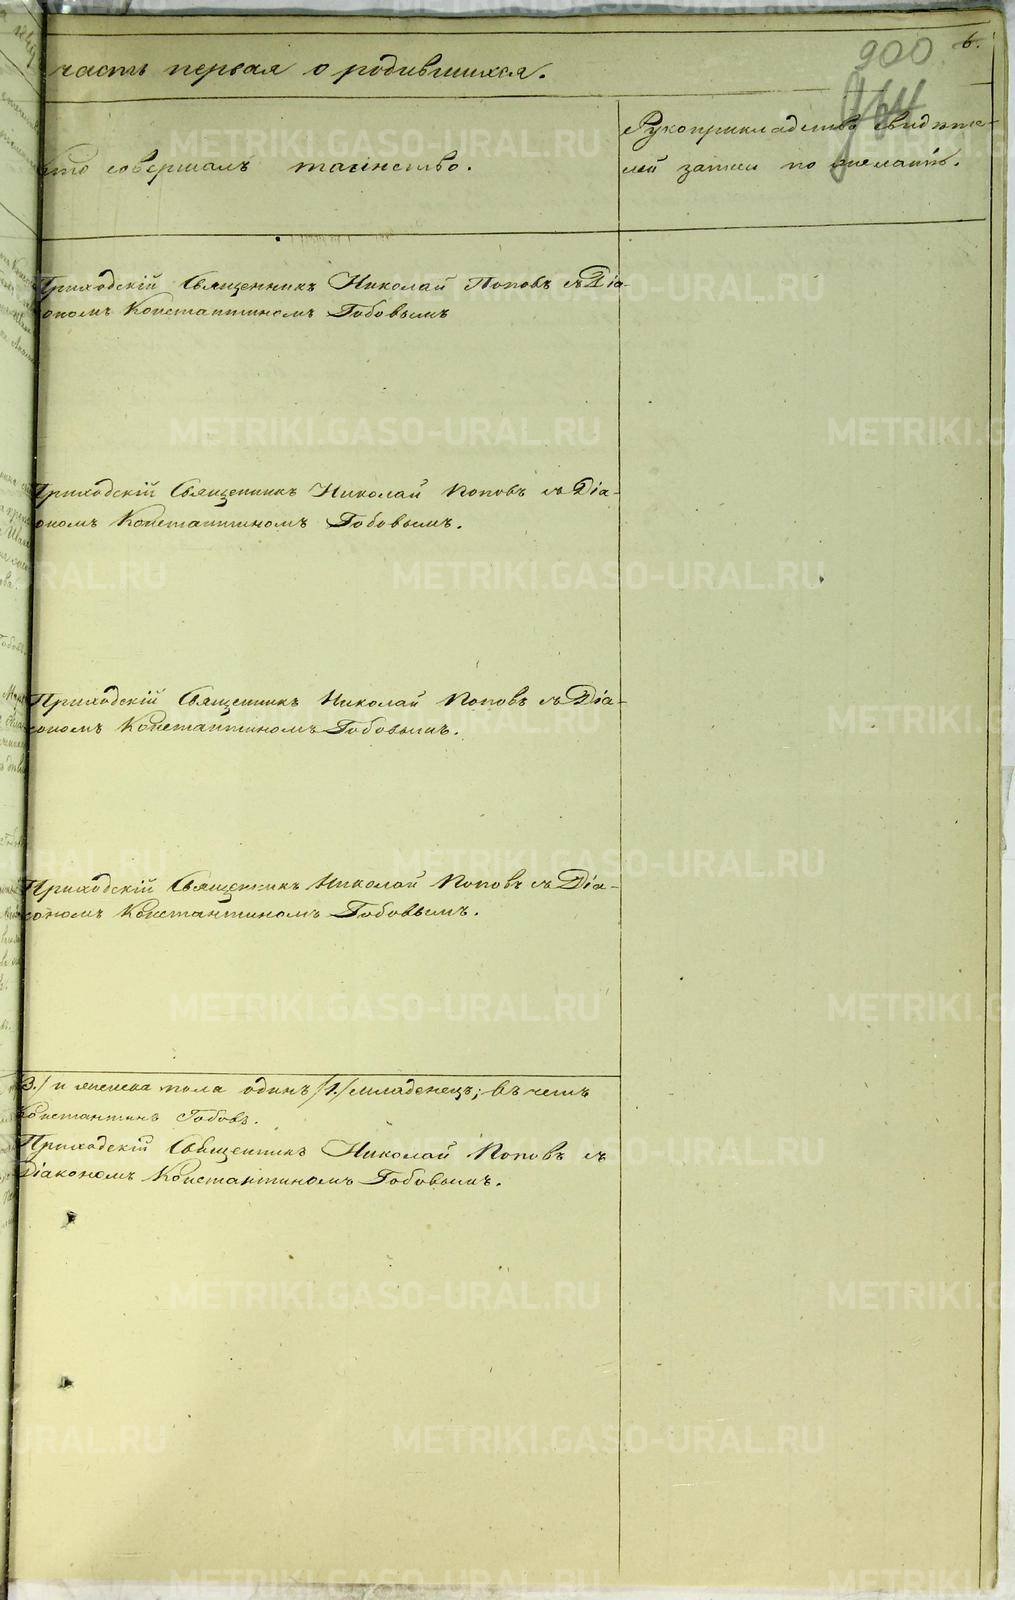 6.
900
часть первая о родившихся.
Кто совершалъ таинство.
Рукоприкладство свидѣте-
лей записи по желанію.
Приходскій Священникъ Николай Поповъ съ Діа-
кономъ Константиномъ Гобовымъ
Приходскій Священникъ Николай Поповъ съ Діа-
кономъ Константиномъ Гобовымъ.
Приходскій Священникъ Николай Поповъ съ Діа-
кономъ Константиномъ Гобовымъ.
Приходскій Священникъ Николай Поповъ съ Діа-
кономъ Константиномъ Гобовымъ.
3./ и женска пола одинъ /1./ младенецъ; въ чемъ
Константинъ Гобовъ.
Приходскій Священникъ Николай Поповъ съ
Діакономъ Константиномъ Гобовымъ.
METRIKI.GASO-URAL.RU